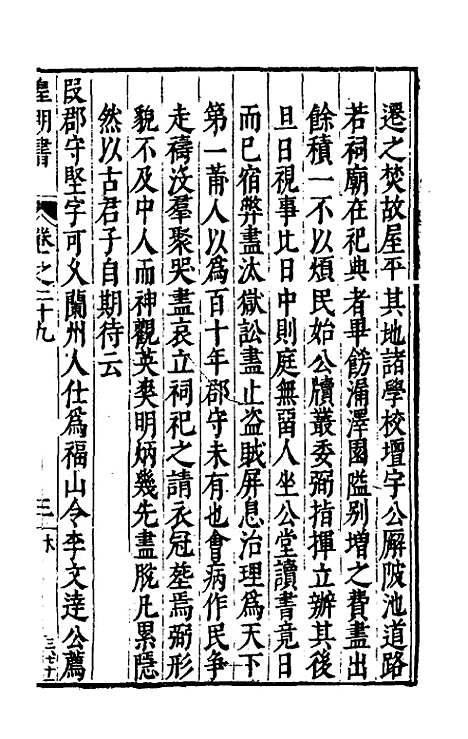 遷之焚故屋平其地諸學校壇宇公廨陂池道路
若祠廟在祀典者畢餝漏澤園隘别增之費盡出
餘積一不以煩民始公牘叢委弼指揮立辦其後
旦日視事比日中則庭無留人坐公堂讀書竟日
而已宿弊盡汰獄訟盡止盗賊屏息治理爲天下
第一莆人以爲百十年郡守未有也會病作民争
走禱没羣聚哭盡哀立祠祀之請衣冠塟焉弼形
貌不及中人而神觀英奕明炳幾先盡脱凡累隱
然以古君子自期待云
段郡守堅字可久蘭州人仕爲福山令李文達公薦
皇明書
卷之二十九
三
三七十一